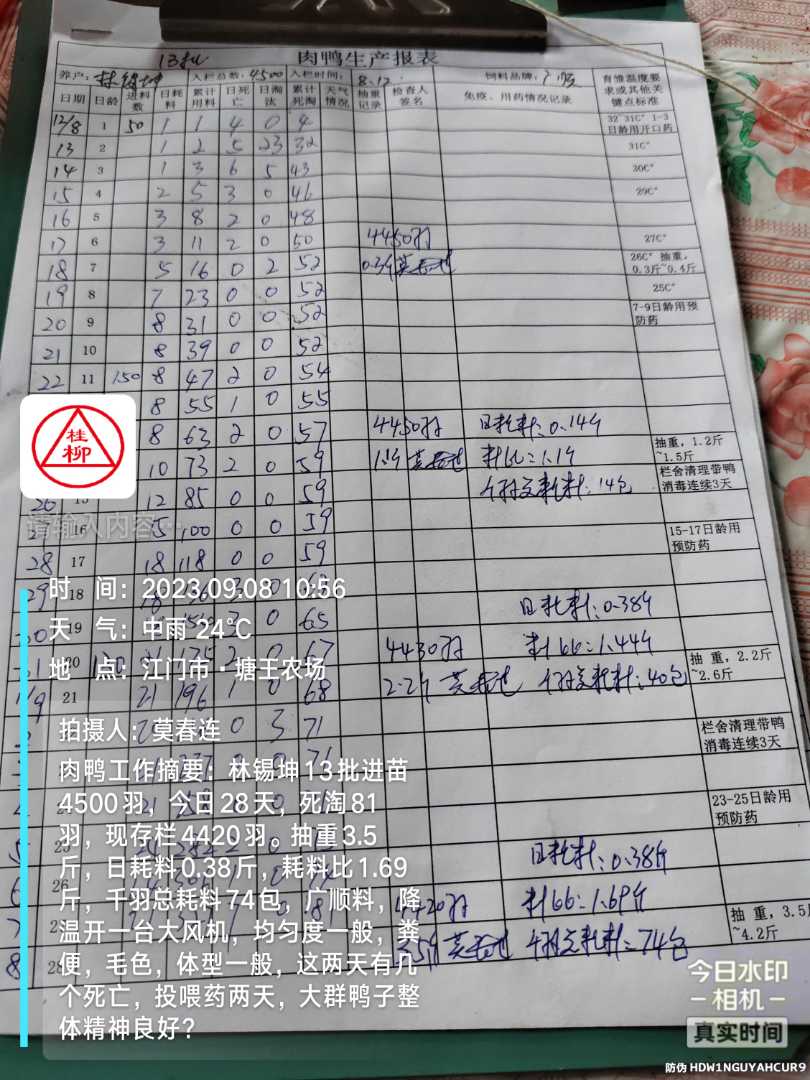 13批
肉鸭生产报表
养户: 入栏总数: 4500 入栏时间: 8.12 饲料品牌:
日期 日龄 进料数 日耗料 累计用料 日死亡 日淘汰 累计死淘 天气情况 抽重记录 检查人签名 免疫、用药情况记录 育雏温度要求或其他关键点标准
12/8 1 50 1 1 4 0 4 32~31C° 1-3日龄用开口药
13 2 1 2 5 23 32 31C°
14 3 1 3 6 5 43 30C°
15 4 2 5 3 0 46 29C°
16 5 3 8 2 0 48
17 6 3 11 2 0 50 4450羽 27C°
18 7 5 16 0 2 52 26C° 抽重, 0.3斤~0.4斤
19 8 7 23 0 0 52 25C°
20 9 8 31 0 0 52 7-9日龄用预防药
21 10 8 39 0 0 52
22 11 150 8 47 2 0 54
8 55 1 0 55
8 63 2 0 57 4450羽 日耗料:0.14斤
10 73 2 0 59 1.1斤 莫春连 料比=1.1斤 抽重, 1.2斤~1.5斤
26 15 12 85 0 0 59 千羽总耗料:14包 栏舍清理带鸭消毒连续3天
16 100 0 0 59
28 17 18 118 0 0 59 15-17日龄用预防药
29 18
30 19 65 日耗料:0.38斤
20 67 4430羽 料比=1.44斤
21 21 196 1 0 68 2.2斤 莫春连 千羽总耗料:40包 抽重, 2.2斤~2.6斤
0 3 71
栏舍清理带鸭消毒连续3天
23-25日龄用预防药
日耗料:0.38斤
26 4420羽 料比=1.69斤
莫春连 千羽总耗料=74包 抽重, 3.5斤~4.2斤
桂柳
请输入内容...
时 间:2023.09.08 10:56
天 气:中雨 24℃
地 点:江门市·塘王农场
拍摄人:莫春连
肉鸭工作摘要:林锡坤13批进苗
4500羽,今日28天,死淘81
羽,现存栏4420羽。抽重3.5
斤,日耗料0.38斤,耗料比1.69
斤,千羽总耗料74包,广顺料,降
温开一台大风机,均匀度一般,粪
便,毛色,体型一般,这两天有几
个死亡,投喂药两天,大群鸭子整
体精神良好?
今日水印
-相机-
真实时间
防伪 HDW1NGUYAHCUR9